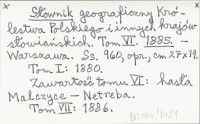 Słownik geograficzny Kró-
lestwa Polskiego i innych krajów
słowiańskich. Tom VI. 1885. -
Warszawa. Ss. 960, opr., cm 27 x 19.
Tom I: 1880.
Zawartość tomu VI: hasła
Malczyce - Netreba.
Tom VII: 1886.